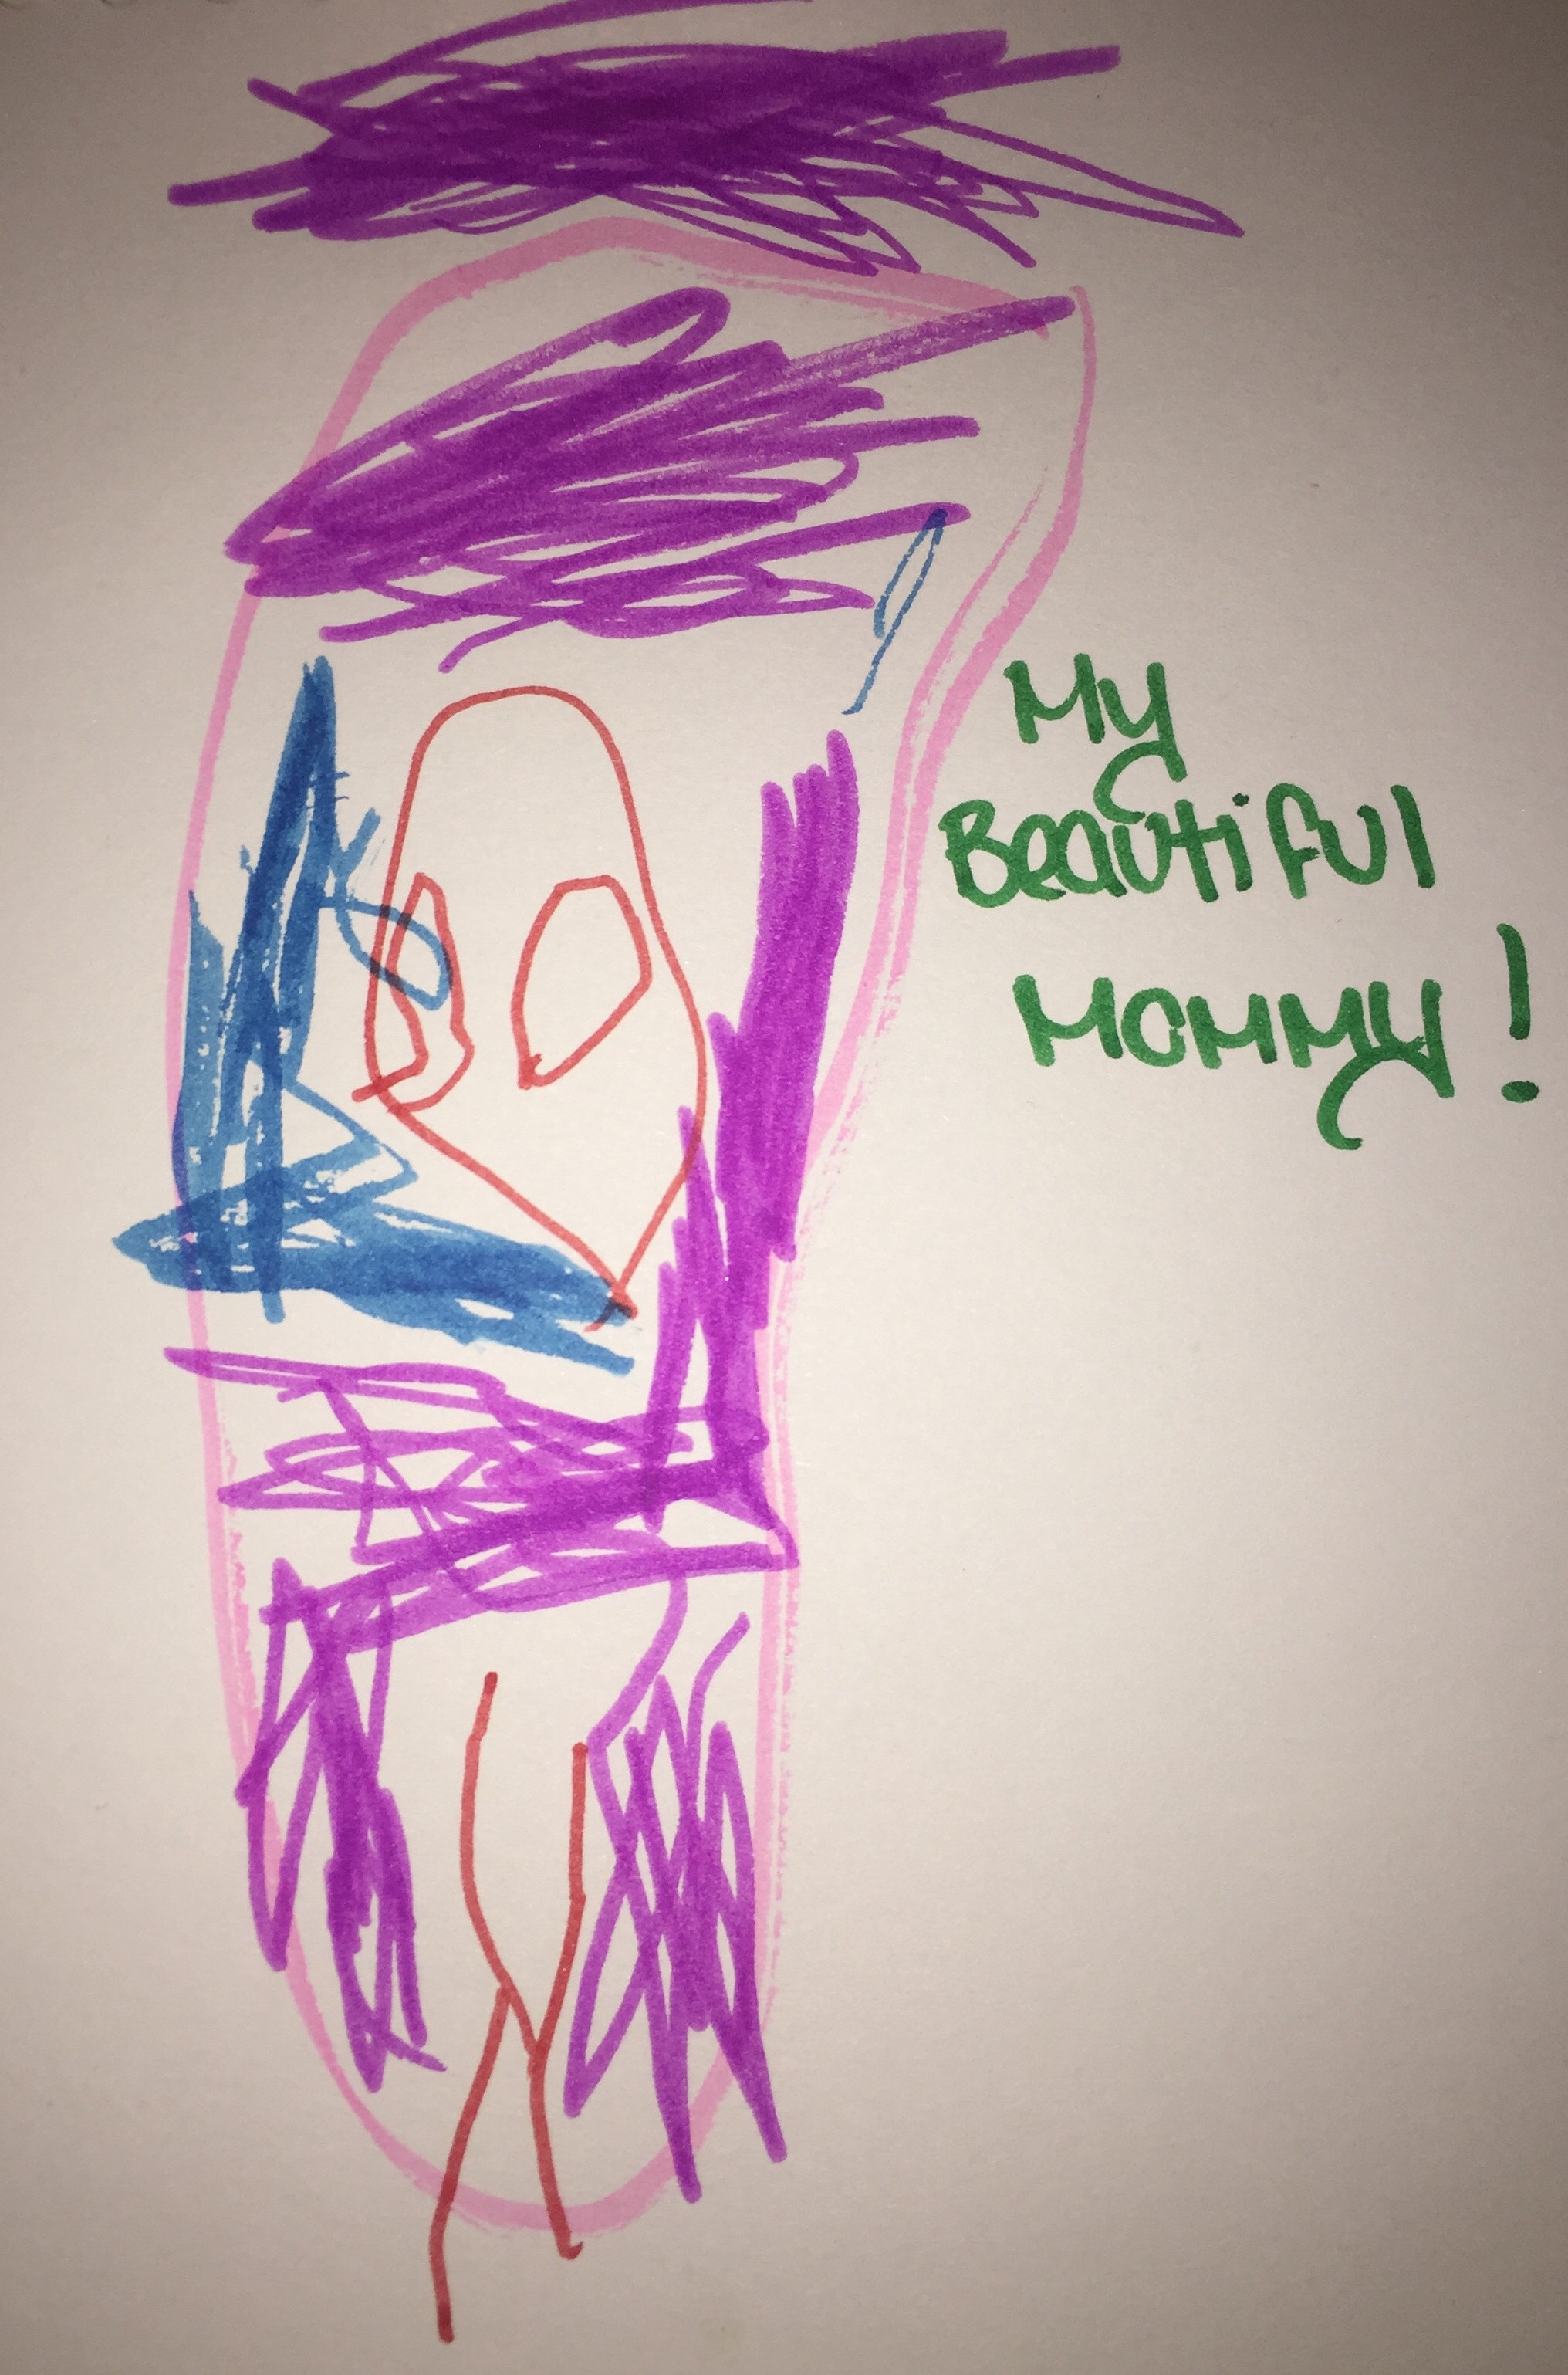 My
Beautiful
Mommy!